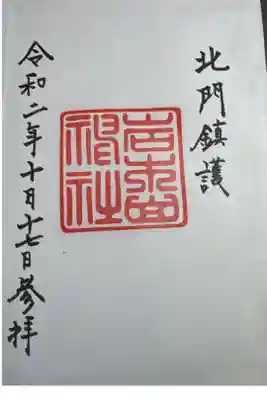 北門鎮護
岩木山
神社
令和二年十月十七日参拝